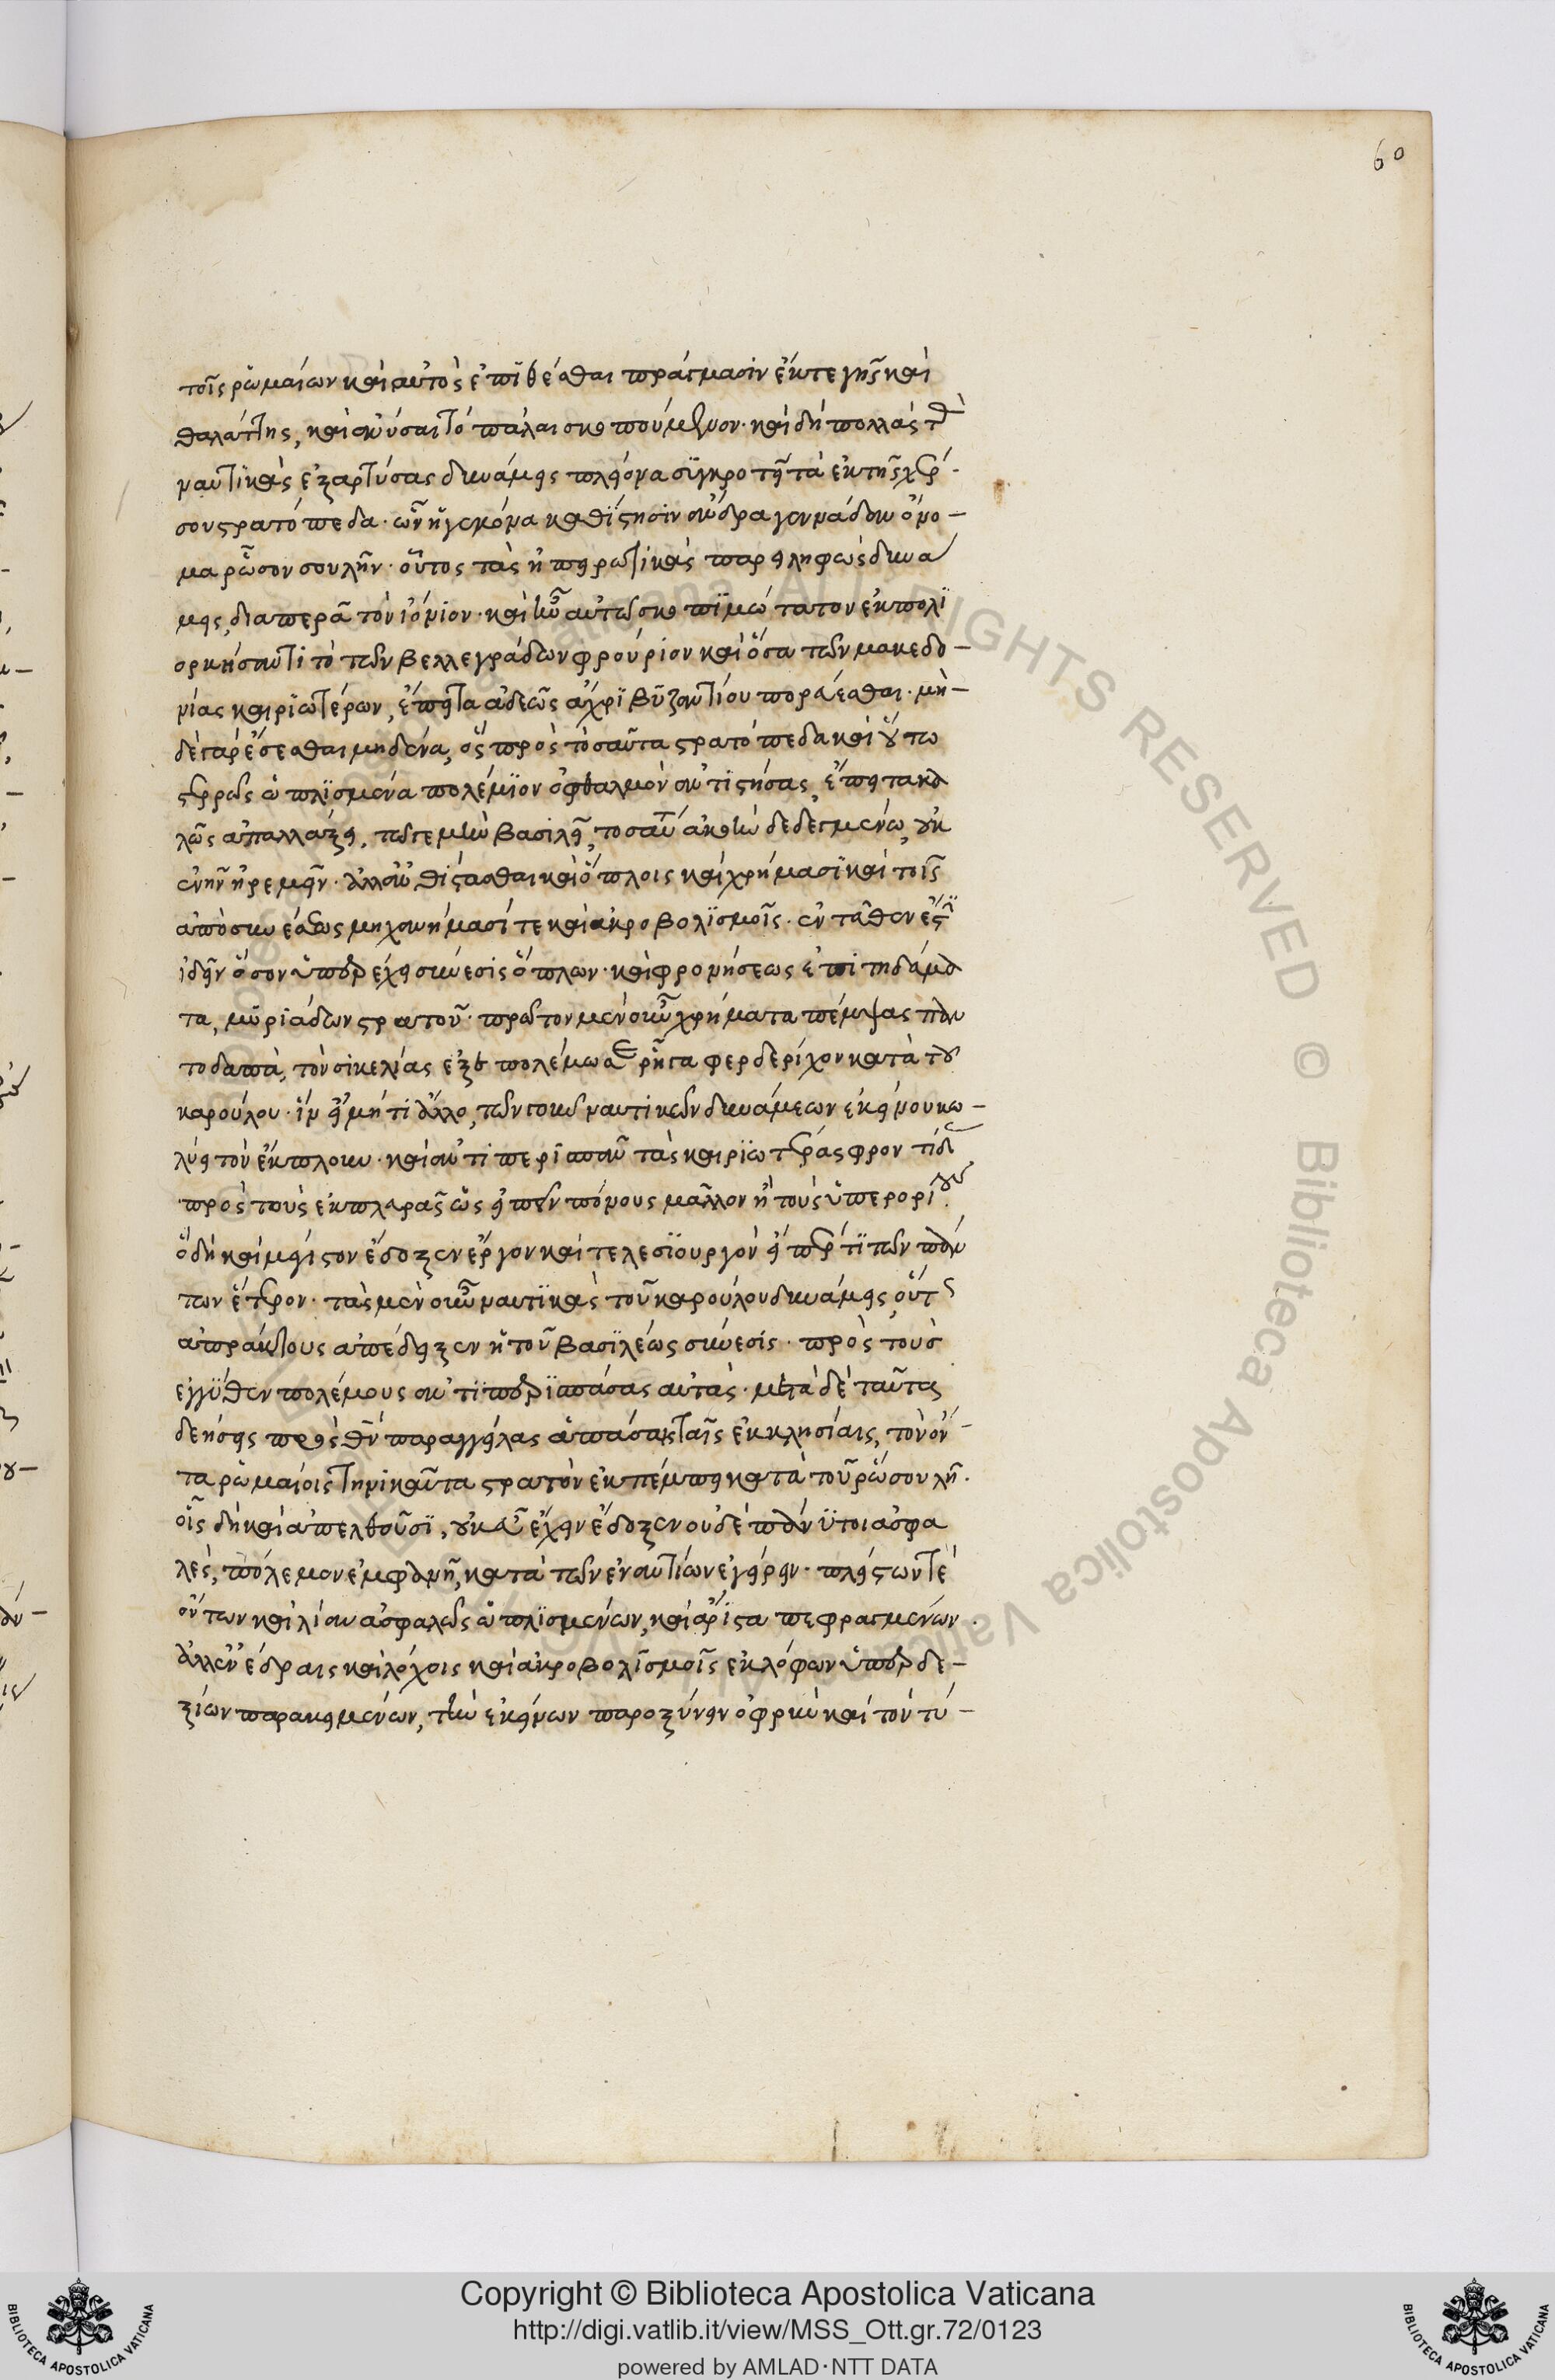 60
τοῖς ῥωμαίων καὶ αὐτὸς ἐπιθέσθαι πράγμασιν ἔκτε γῆς καὶ
θαλάττης, καὶ ἀνύσαι τὸ πάλαι σκοπούμενον· καὶ δὴ πολλὰς τὰς
ναυτικὰς ἐξαρτύσας δυνάμεις πλείονα συγκροτεῖ τὰ ἐκ τῆς χέρ-
σου στρατόπεδα· ὧν ἡγεμόνα καθίστησιν ἄνδρα γεννάδαν ὄνο-
μα ῥῶσον σουλῆν· οὗτος τὰς ἠπειρωτικὰς παρειληφὼς δυνά
μεις, διαπερᾷ τὸν ἰόνιον· καὶ ἦν αὐτῷ σκοπιμώτατον ἐκπολι
ορκήσαντι τὸ τῶν βελλεγράδων φρούριον καὶ ὅσα τῶν μακεδο-
νίας καιριωτέρων, ἔπειτα ἀδεῶς ἄχρι βυζαντίου πορεύεσθαι· μη-
δὲ γὰρ ἔσεσθαι μηδένα, ὃς πρὸς τοσαῦτα στρατόπεδα καὶ οὕτω
στερρῶς ὡπλισμένα πολέμιον ὀφθαλμὸν ἀντιστήσας, ἔπειτα κα
λῶς ἀπαλλάξει, τῷ γε μὴν βασιλεῖ, τοσαῦτ' ἀκηκοέναι δεδεγμένῳ, οὐκ
ἐνῆν ἠρεμεῖν· ἀλλ' ἀνθίστασθαι καὶ ὅπλοις καὶ χρήμασι καὶ τοῖς
ἀπὸ συνέσεως μηχανήμασί τε καὶ ἀκροβολισμοῖς· ἐνταῦθεν ἔστιν
ἰδεῖν ὅσον ὑπερέχει σύνεσις ὅπλων· καὶ φρονήσεως ἐπιτηδεύμα
τα, μυριάδων στρατοῦ· πρῶτον μὲν οὖν χρήματα πέμψας παν
τοδαπὰ, τὸν σικελίας ἐξεπολέμωσε ῥῆγα φερδερίχον κατὰ τοῦ
καρούλου· ἵν' εἰ μή τι ἄλλο, τῶν γοῦν ναυτικῶν δυνάμεων ἐκείνου κω-
λύει τὸν ἔκπλουν· καὶ ἀντιπερισπᾶν τὰς καιριωτέρας φροντίδας
πρὸς τοὺς ἐκ πλευρᾶς ὡς εἰπεῖν πόνους μᾶλλον ἢ τοὺς ὑπερορίους.
ὃ δὴ καὶ μέγιστον ἔδοξεν ἔργον καὶ τελεσιουργὸν εἴπέρ τι τῶν πάν
των ἕτερον· τὰς μὲν οὖν ναυτικὰς τοῦ καρούλου δυνάμεις, οὕτως
ἀπράκτους ἀπέδειξεν ἡ τοῦ βασιλέως σύνεσις· πρὸς τοὺς
ἐγγύθεν πολέμους ἀντιπεριισπάσας αὐτάς· μετὰ δὲ ταῦτα
δεήσεις πρὸς θεὸν παραγγείλας ἁπάσαις ταῖς ἐκκλησίαις, τὸν ὄν-
τα ῥωμαίοις τηνικαῦτα στρατὸν ἐκπέμπει κατὰ τοῦ ῥώσου λῆ.
οἷς δὴ καὶ ἀπελθοῦσι, οὐκ εὖ ἔχειν ἔδοξεν οὐδὲ πάνυ τοι ἀσφα
λὲς, πόλεμον ἐμφανῆ, κατὰ τῶν ἐναντίων ἐγείρειν· πλείστων τὲ
ὄντων καὶ λίαν ἀσφαλῶς ὡπλισμένων, καὶ ἄριστα πεφραγμένων.
ἀλλ' ἐνέδραις καὶ λόχοις καὶ ἀκροβολισμοῖς ἐκ λόφων ὑπερδε-
ξίων παρακειμένων, τὴν ἐκείνων παροξύνειν ὀφρὺν καὶ τὸν τύ-
Copyright © Biblioteca Apostolica Vaticana
http://digi.vatlib.it/view/MSS_Ott.gr.72/0123
powered by AMLAD·NTT DATA